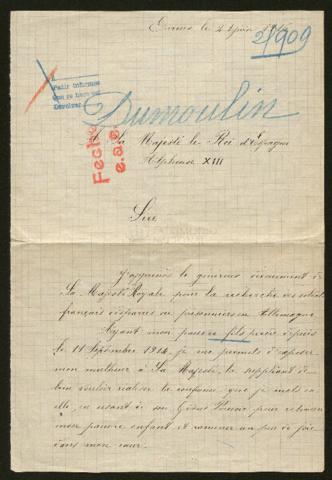 le 4 Juin
21909
Pedir informes
Dumoulin
Fecho
e.a.e.
A Sa Majesté le Roi d'Espagne
Alphonse XIII
Sire
J'apprends le généreux dévouement de
Sa Majesté Royale pour la recherche des soldats
français disparus ou prisonniers en Allemagne
Ayant mon pauvre fils depuis
le 11 Septembre 1914, je me permets d'exposer
mon malheur à Sa Majesté, le suppliant de
bien vouloir réaliser la confiance que je mets en
elle, en usant de son Grand Pouvoir pour retrouver
mon pauvre enfant et ramener un peu de joie
dans mon cœur.